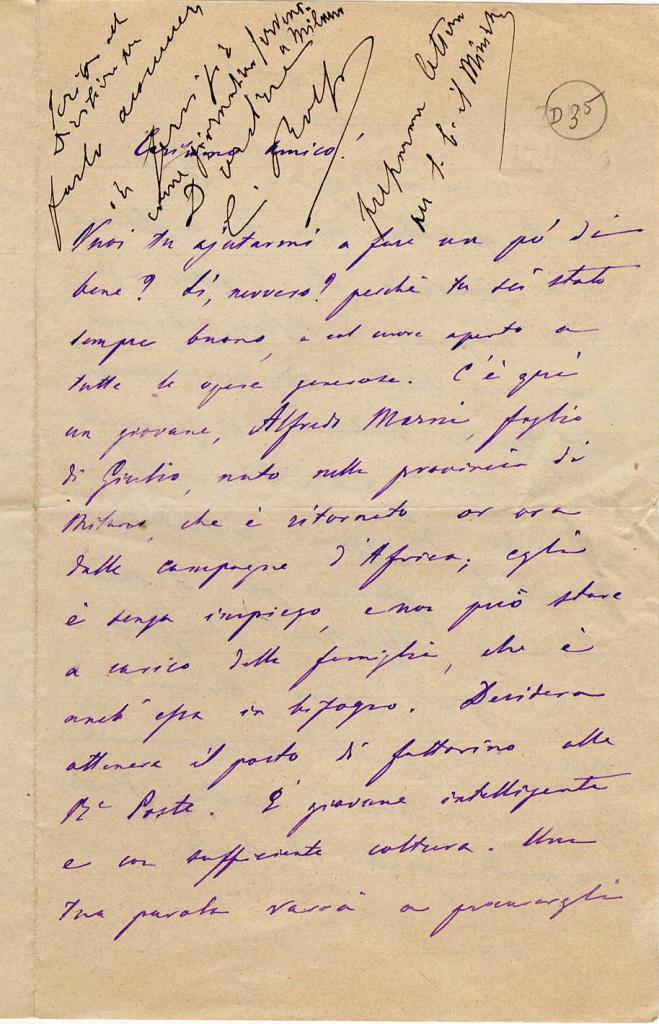 Scrivi al
Direttore
farlo
in servizio
come giornaliero
a Milano
D
preparare lettera
per S. E. il Ministro
D 35
Carissimo Amico!
Vuoi tu ajutarmi a fare un pò di
bene? Sì, nevvero? perchè tu sei stato
sempre buono, e col cuore aperto a
tutte le opere generose. C'è quì
un giovane, Alfredo Marni, figlio
di Giulio, nato nella provincia di
Milano, che è ritornato or ora
dalle campagne d'Africa; egli
è senza impiego, e non può stare
a carico della famiglia, che è
anch'essa in bisogno. Desidera
ottenere il posto di fattorino alle
Re Poste. È giovane intelligente
e con sufficiente coltura. Una
tua parola varrà a procurargli